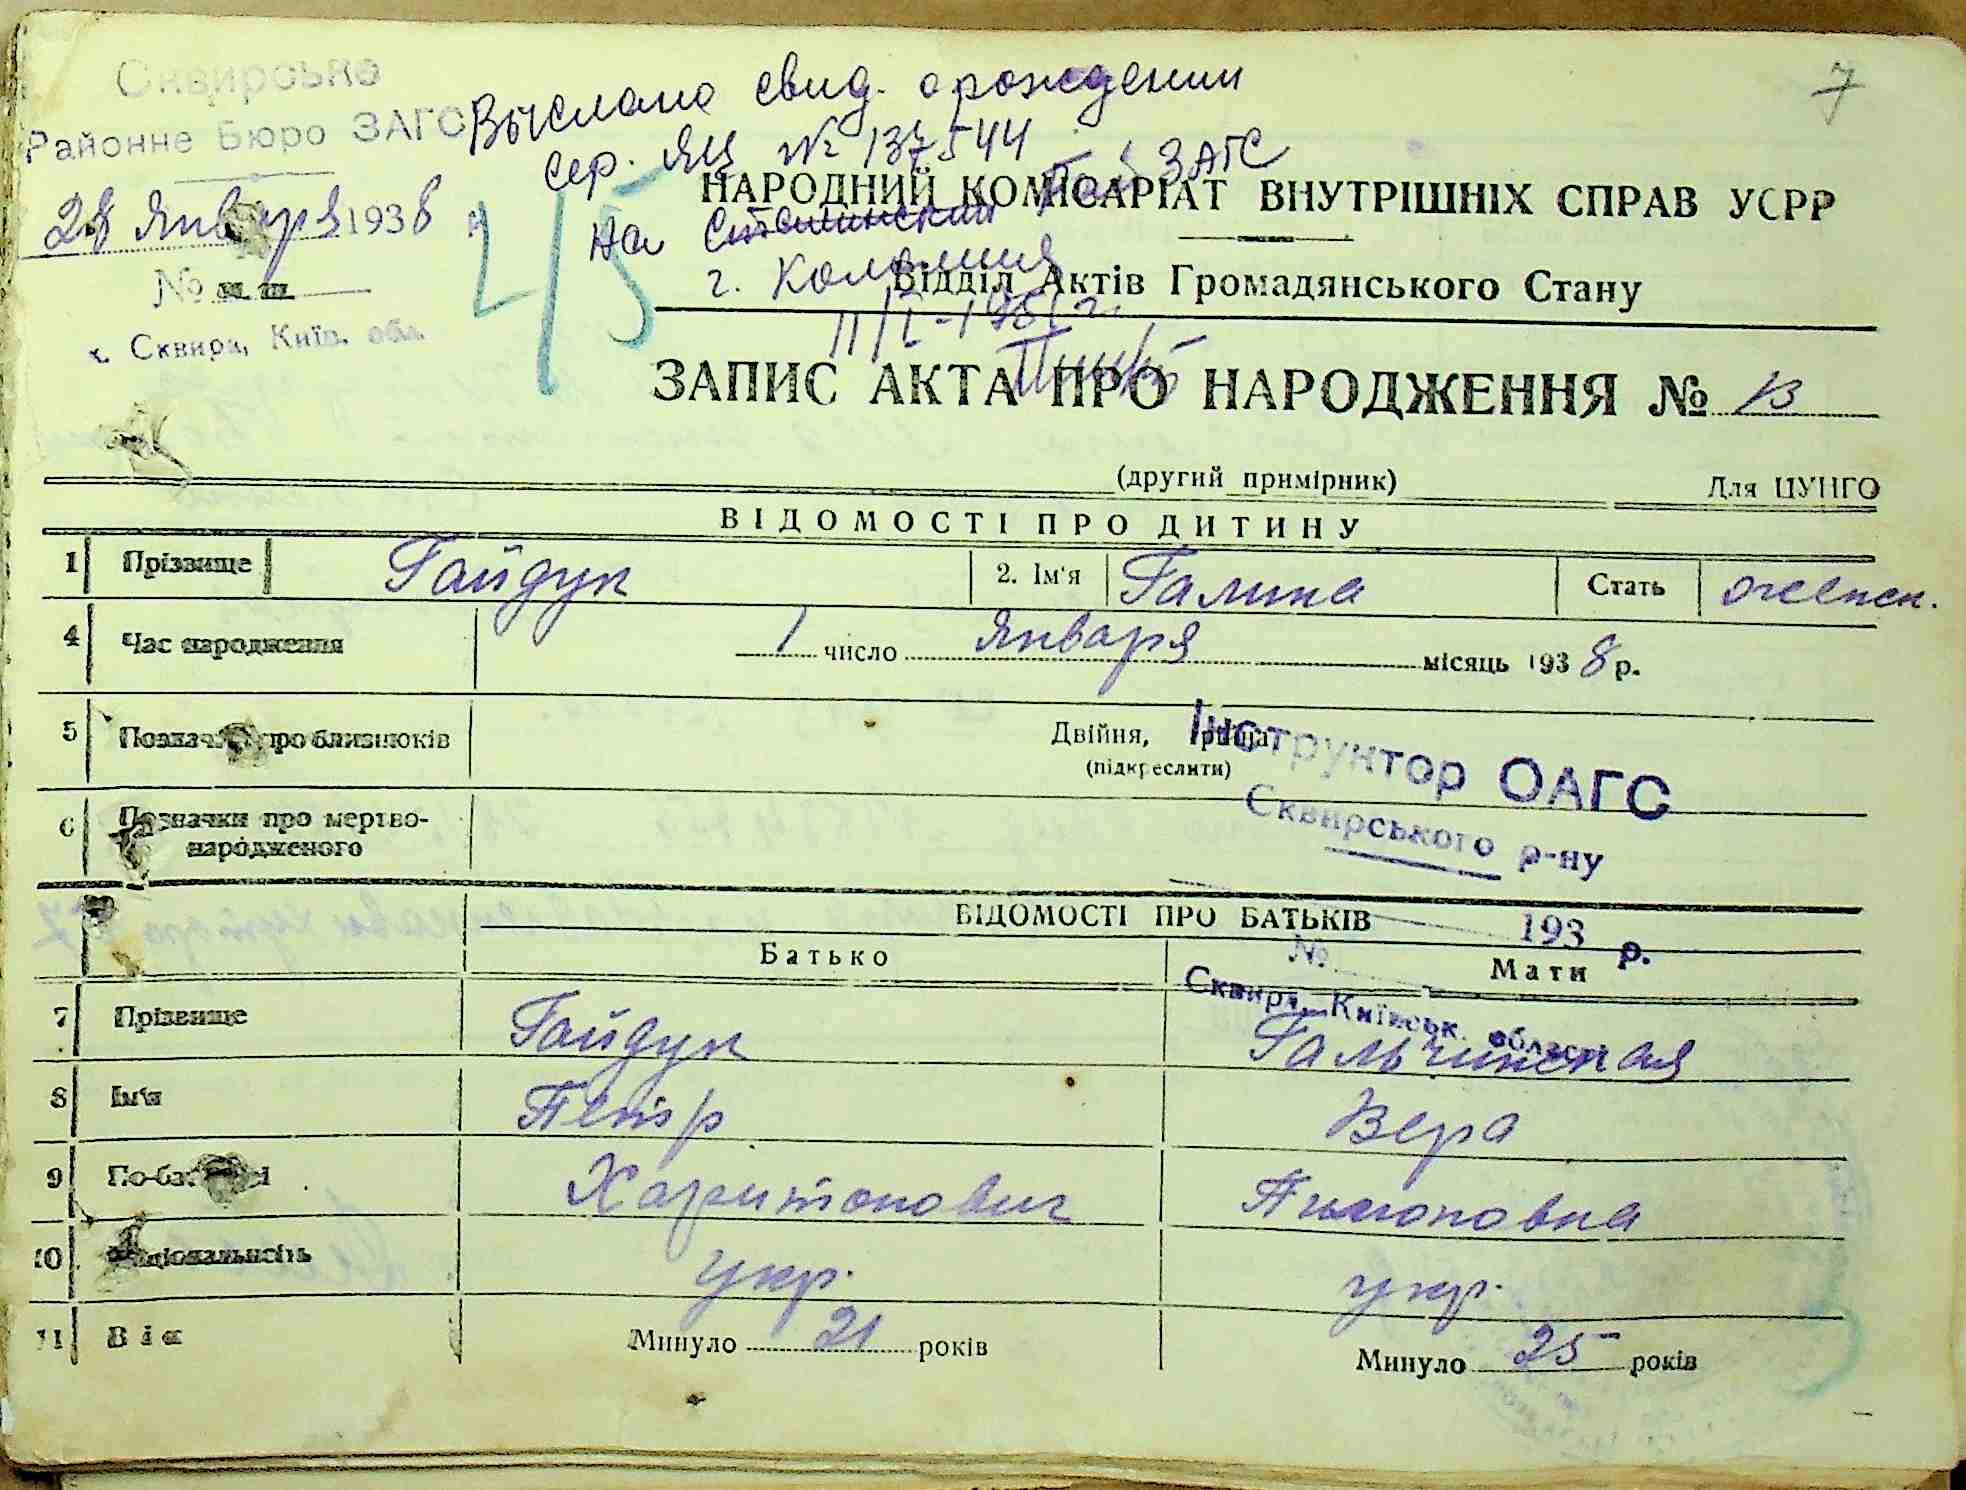 7
Сквирське
Районне Бюро ЗАГС
28 Января 1938
№
м. Сквира, Київ. обл.
Выслано свид. о рождении
сер. ЯЦ № 137544
на Сталинский Рай ЗАГС
г. Коломия
45
НАРОДНИЙ КОМІСАРІАТ ВНУТРІШНІХ СПРАВ УСРР
Відділ Актів Громадянського Стану
ЗАПИС АКТА ПРО НАРОДЖЕННЯ № 13
(другий примірник) Для ЦУНГО
ВІДОМОСТІ ПРО ДИТИНУ
1 Прізвище Гайдук 2. Ім'я Галина Стать женск.
4 Час народження 1 число Января місяць 1938 р.
5 Позначки про близнюків Двійня, трійня
(підкреслити)
Інструктор ОАГС
Сквирського р-ну
6 Позначки про мертво-
народженого
ВІДОМОСТІ ПРО БАТЬКІВ
193 р.
№
Батько Мати
Сквира, Київськ. області
7 Прізвище Гайдук Гальчинская
8 Ім'я Петр Вера
9 По-батькові Харитонович Тимоновна
10 Національність укр. укр.
11 Вік Минуло 21 років Минуло 25 років